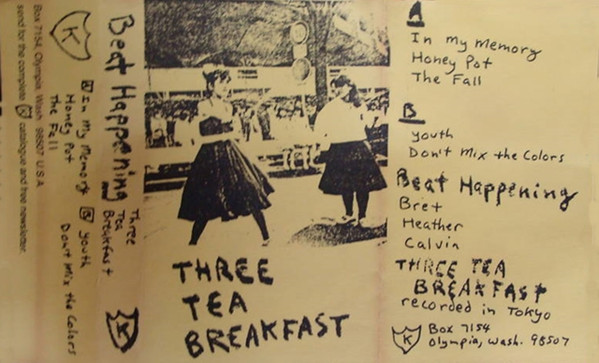 Box 7154, Olympia, Wash. 98507 U.S.A.
send for the complete K catalogue and free newsletter.
K
A In My Memory
Honey Pot
The Fall
B Youth
Don't Mix the Colors
Beat Happening
Three
Tea
Breakfast
K
THREE
TEA
BREAKFAST
A
In my Memory
Honey Pot
The Fall
B
Youth
Don't Mix the Colors
Beat Happening
Bret
Heather
Calvin
THREE TEA
BREAKFAST
recorded in Tokyo
K Box 7154
Olympia, Wash. 98507